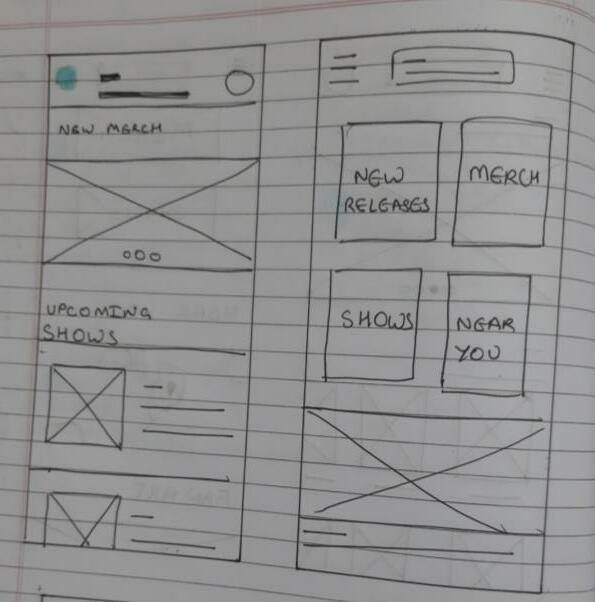 NEW MERCH
UPCOMING
SHOWS
NEW
RELEASES
MERCH
SHOWS
NEAR
YOU